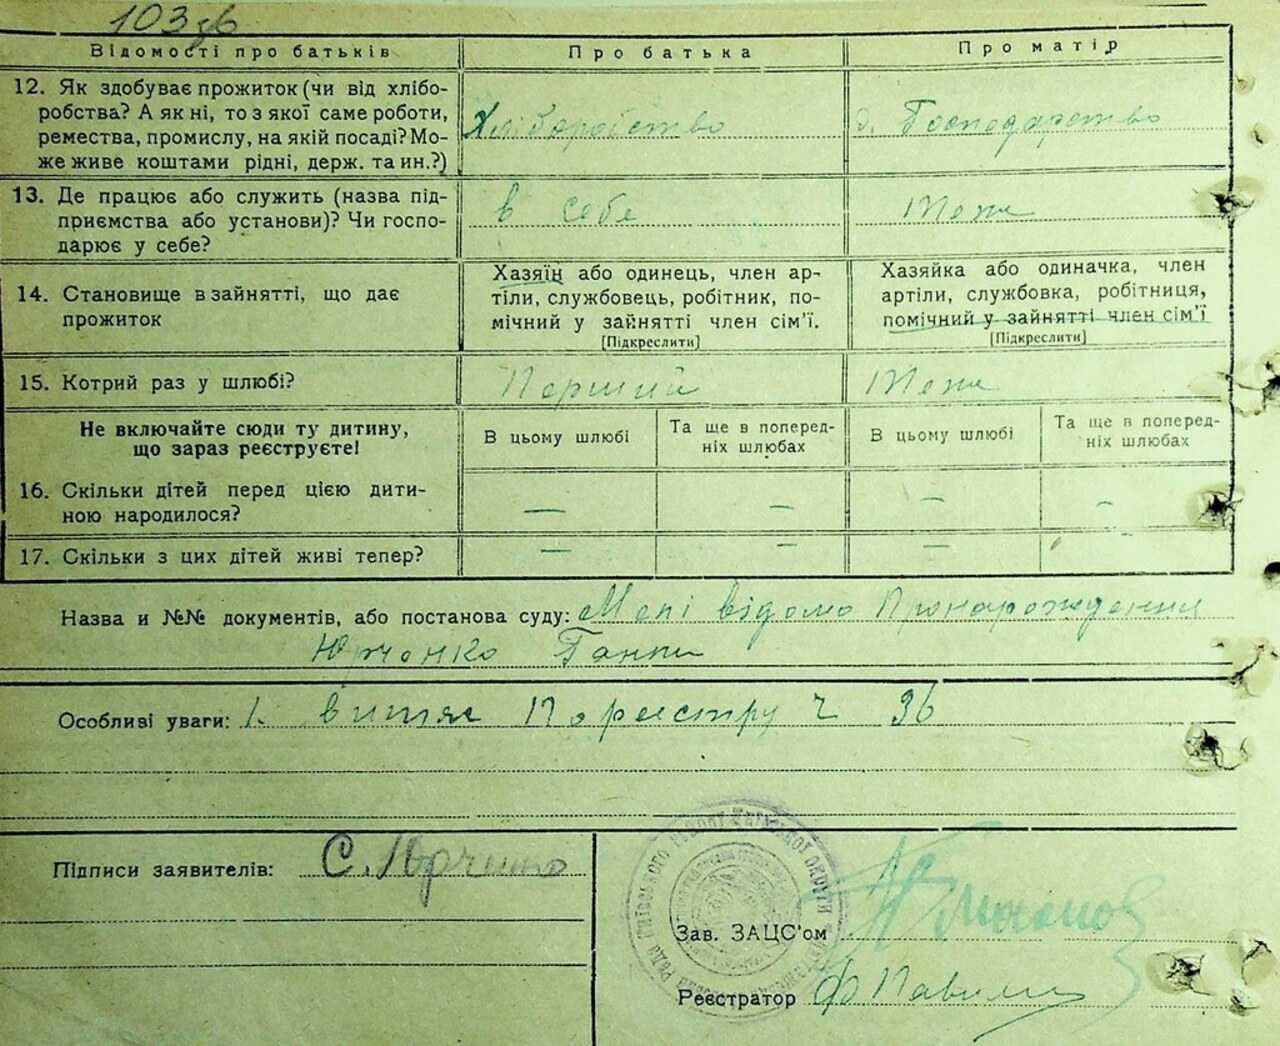 103 зв
Відомості про батьків Про батька Про матір
12. Як здобуває прожиток (чи від хлібо-
робства? А як ні, то з якої саме роботи,
ремества, промислу, на якій посаді? Мо-
же живе коштами рідні, держ. та ин.?)
Хліборобство
д. Господарство
13. Де працює або служить (назва під-
приємства або установи)? Чи госпо-
дарює у себе?
в себе
Теж
14. Становище в зайнятті, що дає
прожиток
Хазяїн або одинець, член ар-
тіли, службовець, робітник, по-
мічний у зайнятті член сім'ї.
[Підкреслити]
Хазяйка або одиначка, член
артіли, службовка, робітниця,
помічний у зайнятті член сім'ї
[Підкреслити]
15. Котрий раз у шлюбі?
Перший
Теж
Не включайте сюди ту дитину,
що зараз реєструєте!
В цьому шлюбі
Та ще в поперед-
ніх шлюбах
В цьому шлюбі
Та ще в поперед-
ніх шлюбах
16. Скільки дітей перед цією дити-
ною народилося?
— — — —
17. Скільки з цих дітей живі тепер?
— — — -
Назва и №№ документів, або постанова суду: Мені відомо Пронарождения
Юрченко Ганни
Особливі уваги: 1. витяг По реестру Ч 36
Підписи заявителів: С. Юрченко
Зав. ЗАЦС'ом
Реєстратор